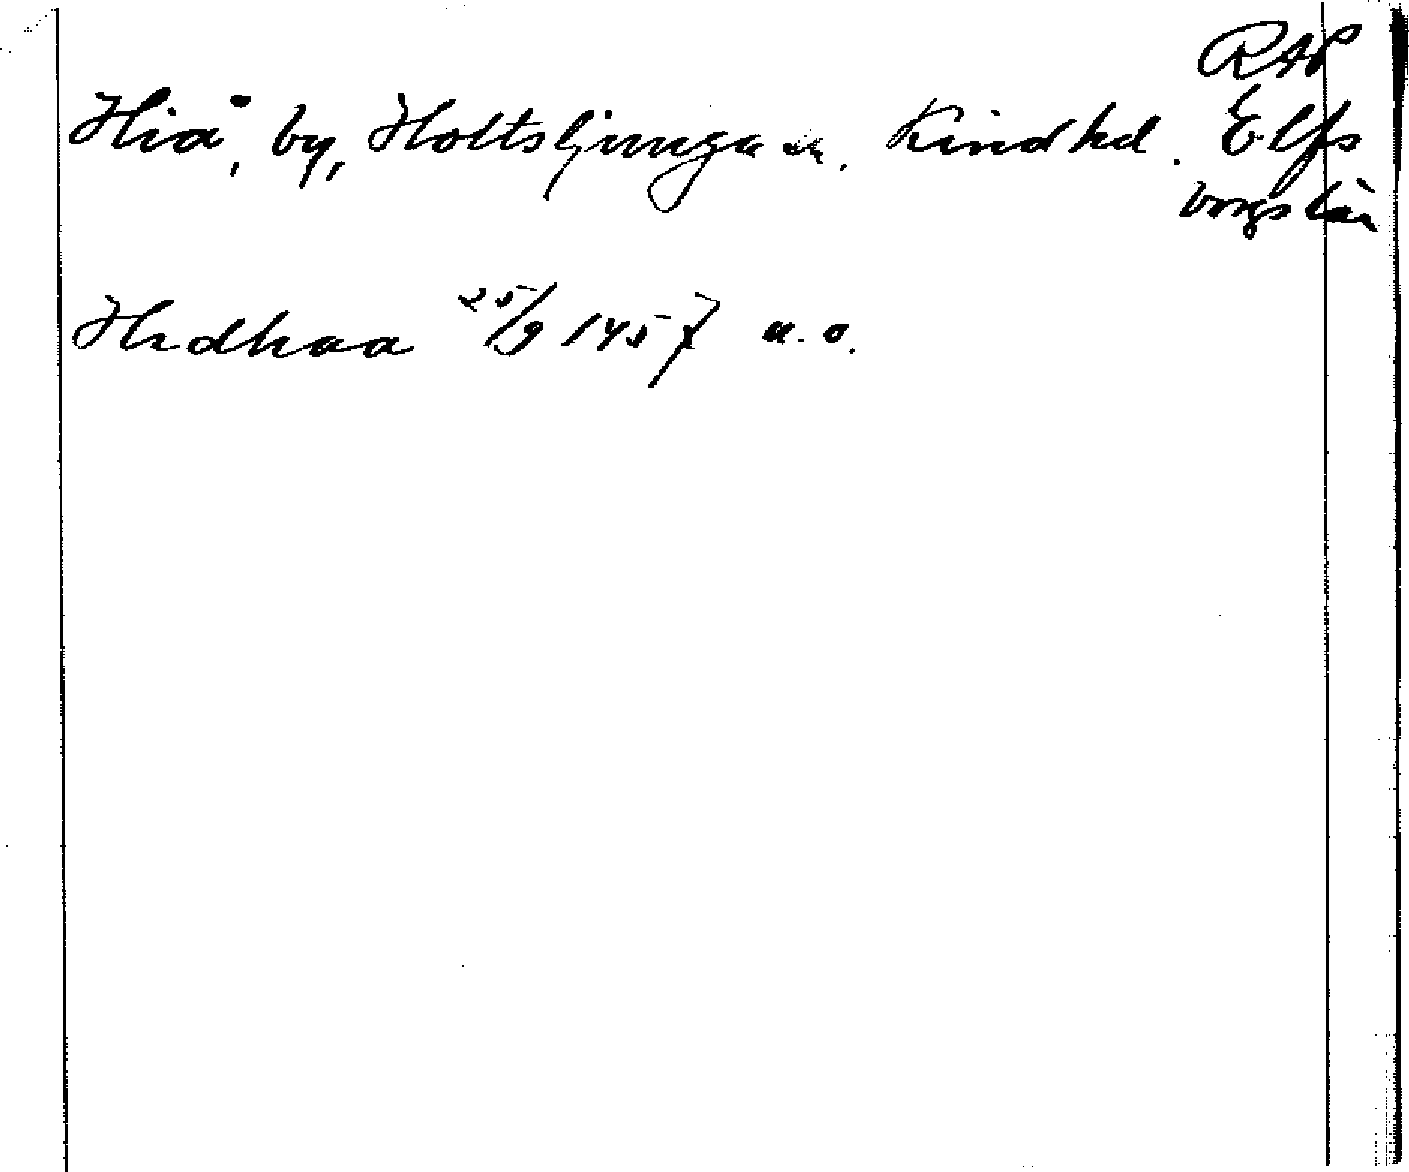 RAP
Hiå, by, Holtsljunga sn. Kind hd. Elfs
borgs län
Hedhaa 25/9 1457 u. o.